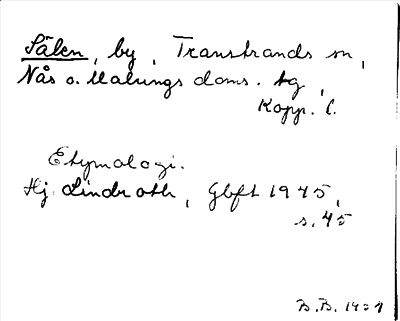 Sälen, by, Transtrands sn,
Nås o. Malungs doms. tg,
Kopp. l.
Etymologi.
Hj. Lindroth, Gbft 1945,
s. 45
B.B. 19